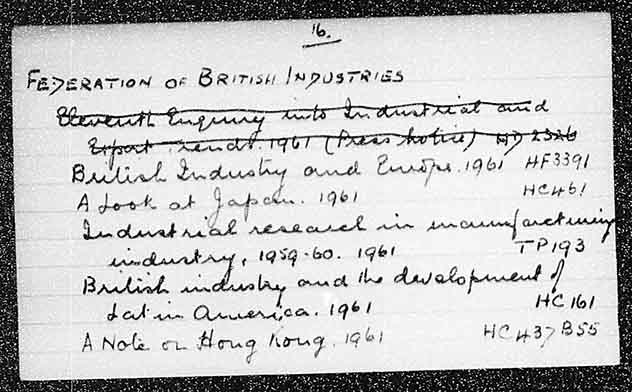 16.
FEDERATION OF BRITISH INDUSTRIES
Eleventh Enquiry into Industrial and
Export Trends. 1961 (Press Notice) HD 2326
British Industry and Europe. 1961 HF3391
A Look at Japan. 1961 HC461
Industrial research in manufacturing
industry, 1959-60. 1961 TP193
British industry and the development of
Latin America. 1961 HC 161
A Note on Hong Kong. 1961 HC437 B55